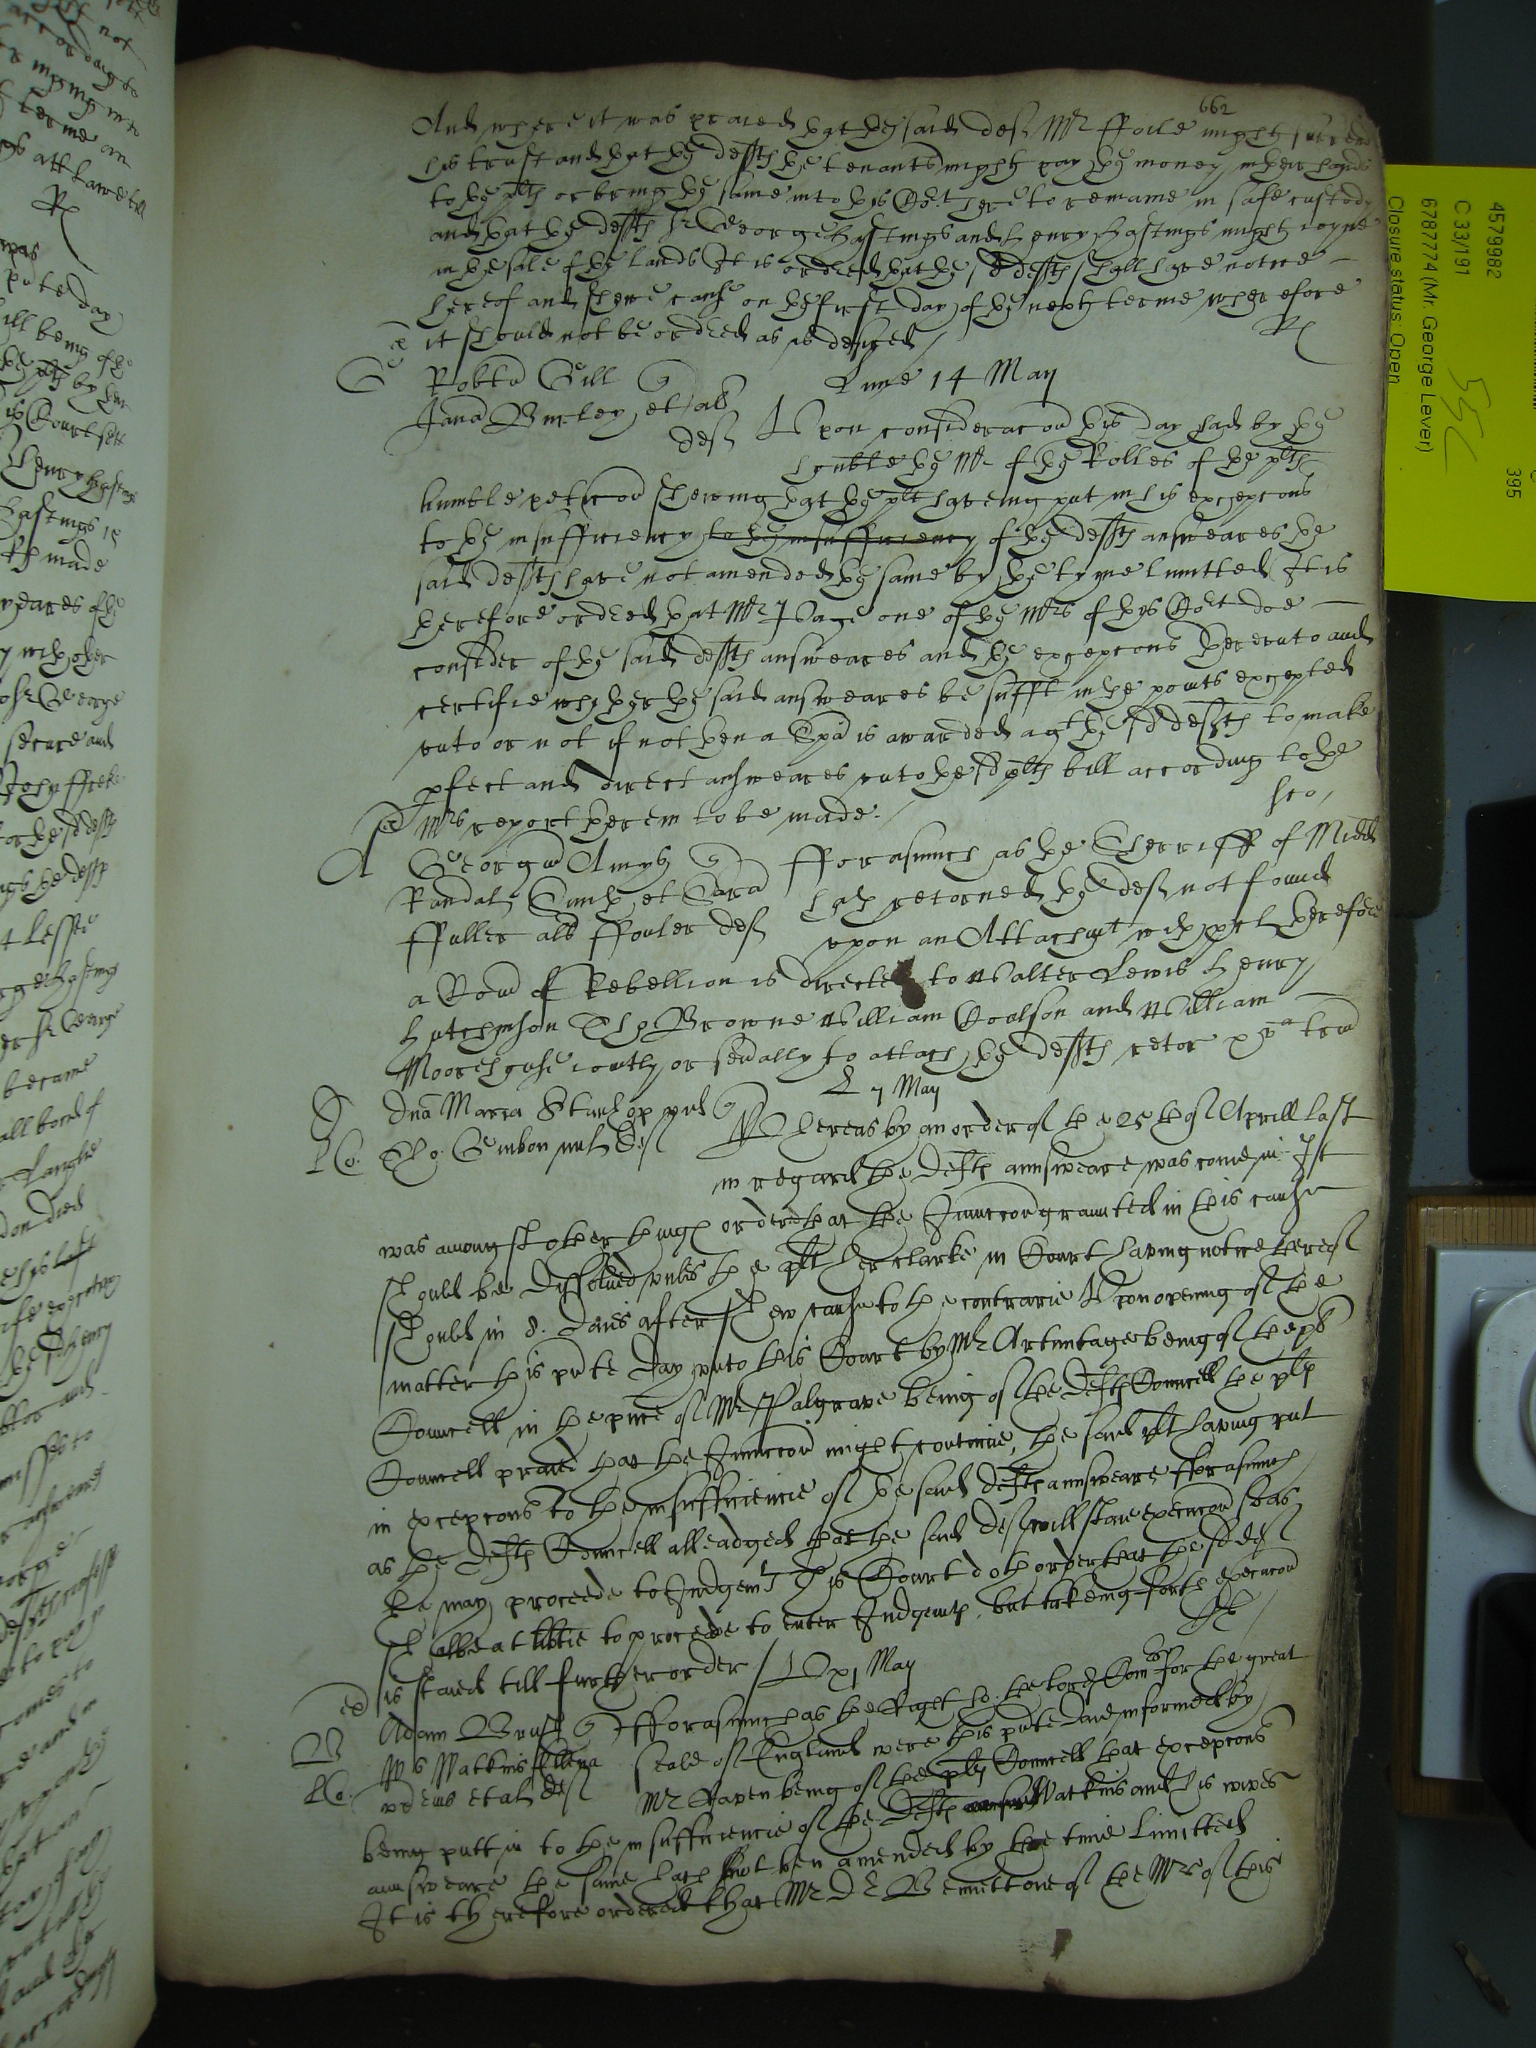 662
And where it was praied that the said def Mr ffoile might surrender
his trust and that the defts the tenants might pay the money in their hands
to the plts or bring the same into this Cort here to remaine in safe custody
and that the defts Sr George Hastings and Henry Hastings might ioyne
in the sale of the lands It is ordred that the sd defts shall have notice
hereof and shewe cause on the first day of the next terme wherefore
it should not be ordred as is desired /
Robtus Gill q
Lune 14 May
Jana Burley et al
def
Upon consideracon this day had by the
honble the Mr of the Rolles of the plts
humble peticon shewing that the plt having put in his excepcons
to the insufficiency to the insufficiency of the defts answeares the
said defts have not amended the same by the tyme limitted It is
therefore ordred that Mr Page one of the Mrs of this Cort doe
consider of the said defts answeares and the excepcons thereunto and
certifie whether the said answeares be sufft in the points excepted
unto or not if not then a Spa is awarded agt the sd defts to make
pfect and direct answeares unto the sd plts bill according to the
Mrs report therein to be made /
Georgius Amys q
Randal Smith et Sara
ffuller als ffouler def
fforasmuch as the Sherriff of Midd
hath retorned the def not found
upon an Attachmt with procl therefore
a Comd of Rebellion is directed to Walter Lewis Henry
Hutchinson Tho Browne William Coulson and William
Moorehouse iointly or sevally to attach the defts retor
7 May
Dna Maria Stanhop vid q
Tho: Gimbon mil def
Whereas by an order of the 25th of Aprill last
in regard the defts annsweare was come in It
was amongst other things ordered that the Iniuccon graunted in this cause
should be dissolved unles the plt her clarke in Court having notice thereof
should in 8. daies after shew cause to the contrarie Upon opening of the
matter this pnte day unto this Court by Mr being of the plts
Councell in the pnce of Mr Palgrave being of the defts Councell the plts
Councell praied that the Iniuccon might continue, the said plt having put
in excepcons to the insufficiencie of the said defts annsweare fforasmuch
as the defts Councell alleadged that the said def will staie execucon soe as
he may proceede to Iudgemt This Court doth order that the sd def
shalbe at libtie to proceede to enter Iudgemt, but takeing forth execucon
is staied till further order /
May
Adam q
Wm Watkins
et al def
fforasmuch as the Right ho: the lords Comrs for the great
seale of England were this pnte daie informed by
Mr being of the plts Councell that excepcons
being putt in to the insufficiencie of the defts Watkins and his wives
annsweare the same hath not ben amended by the time limitted
It is therefore ordered that Mr one of the Mrs of this
4579982
C 33/191
6787774 (Mr. George Lever)
Closure status: Open
395